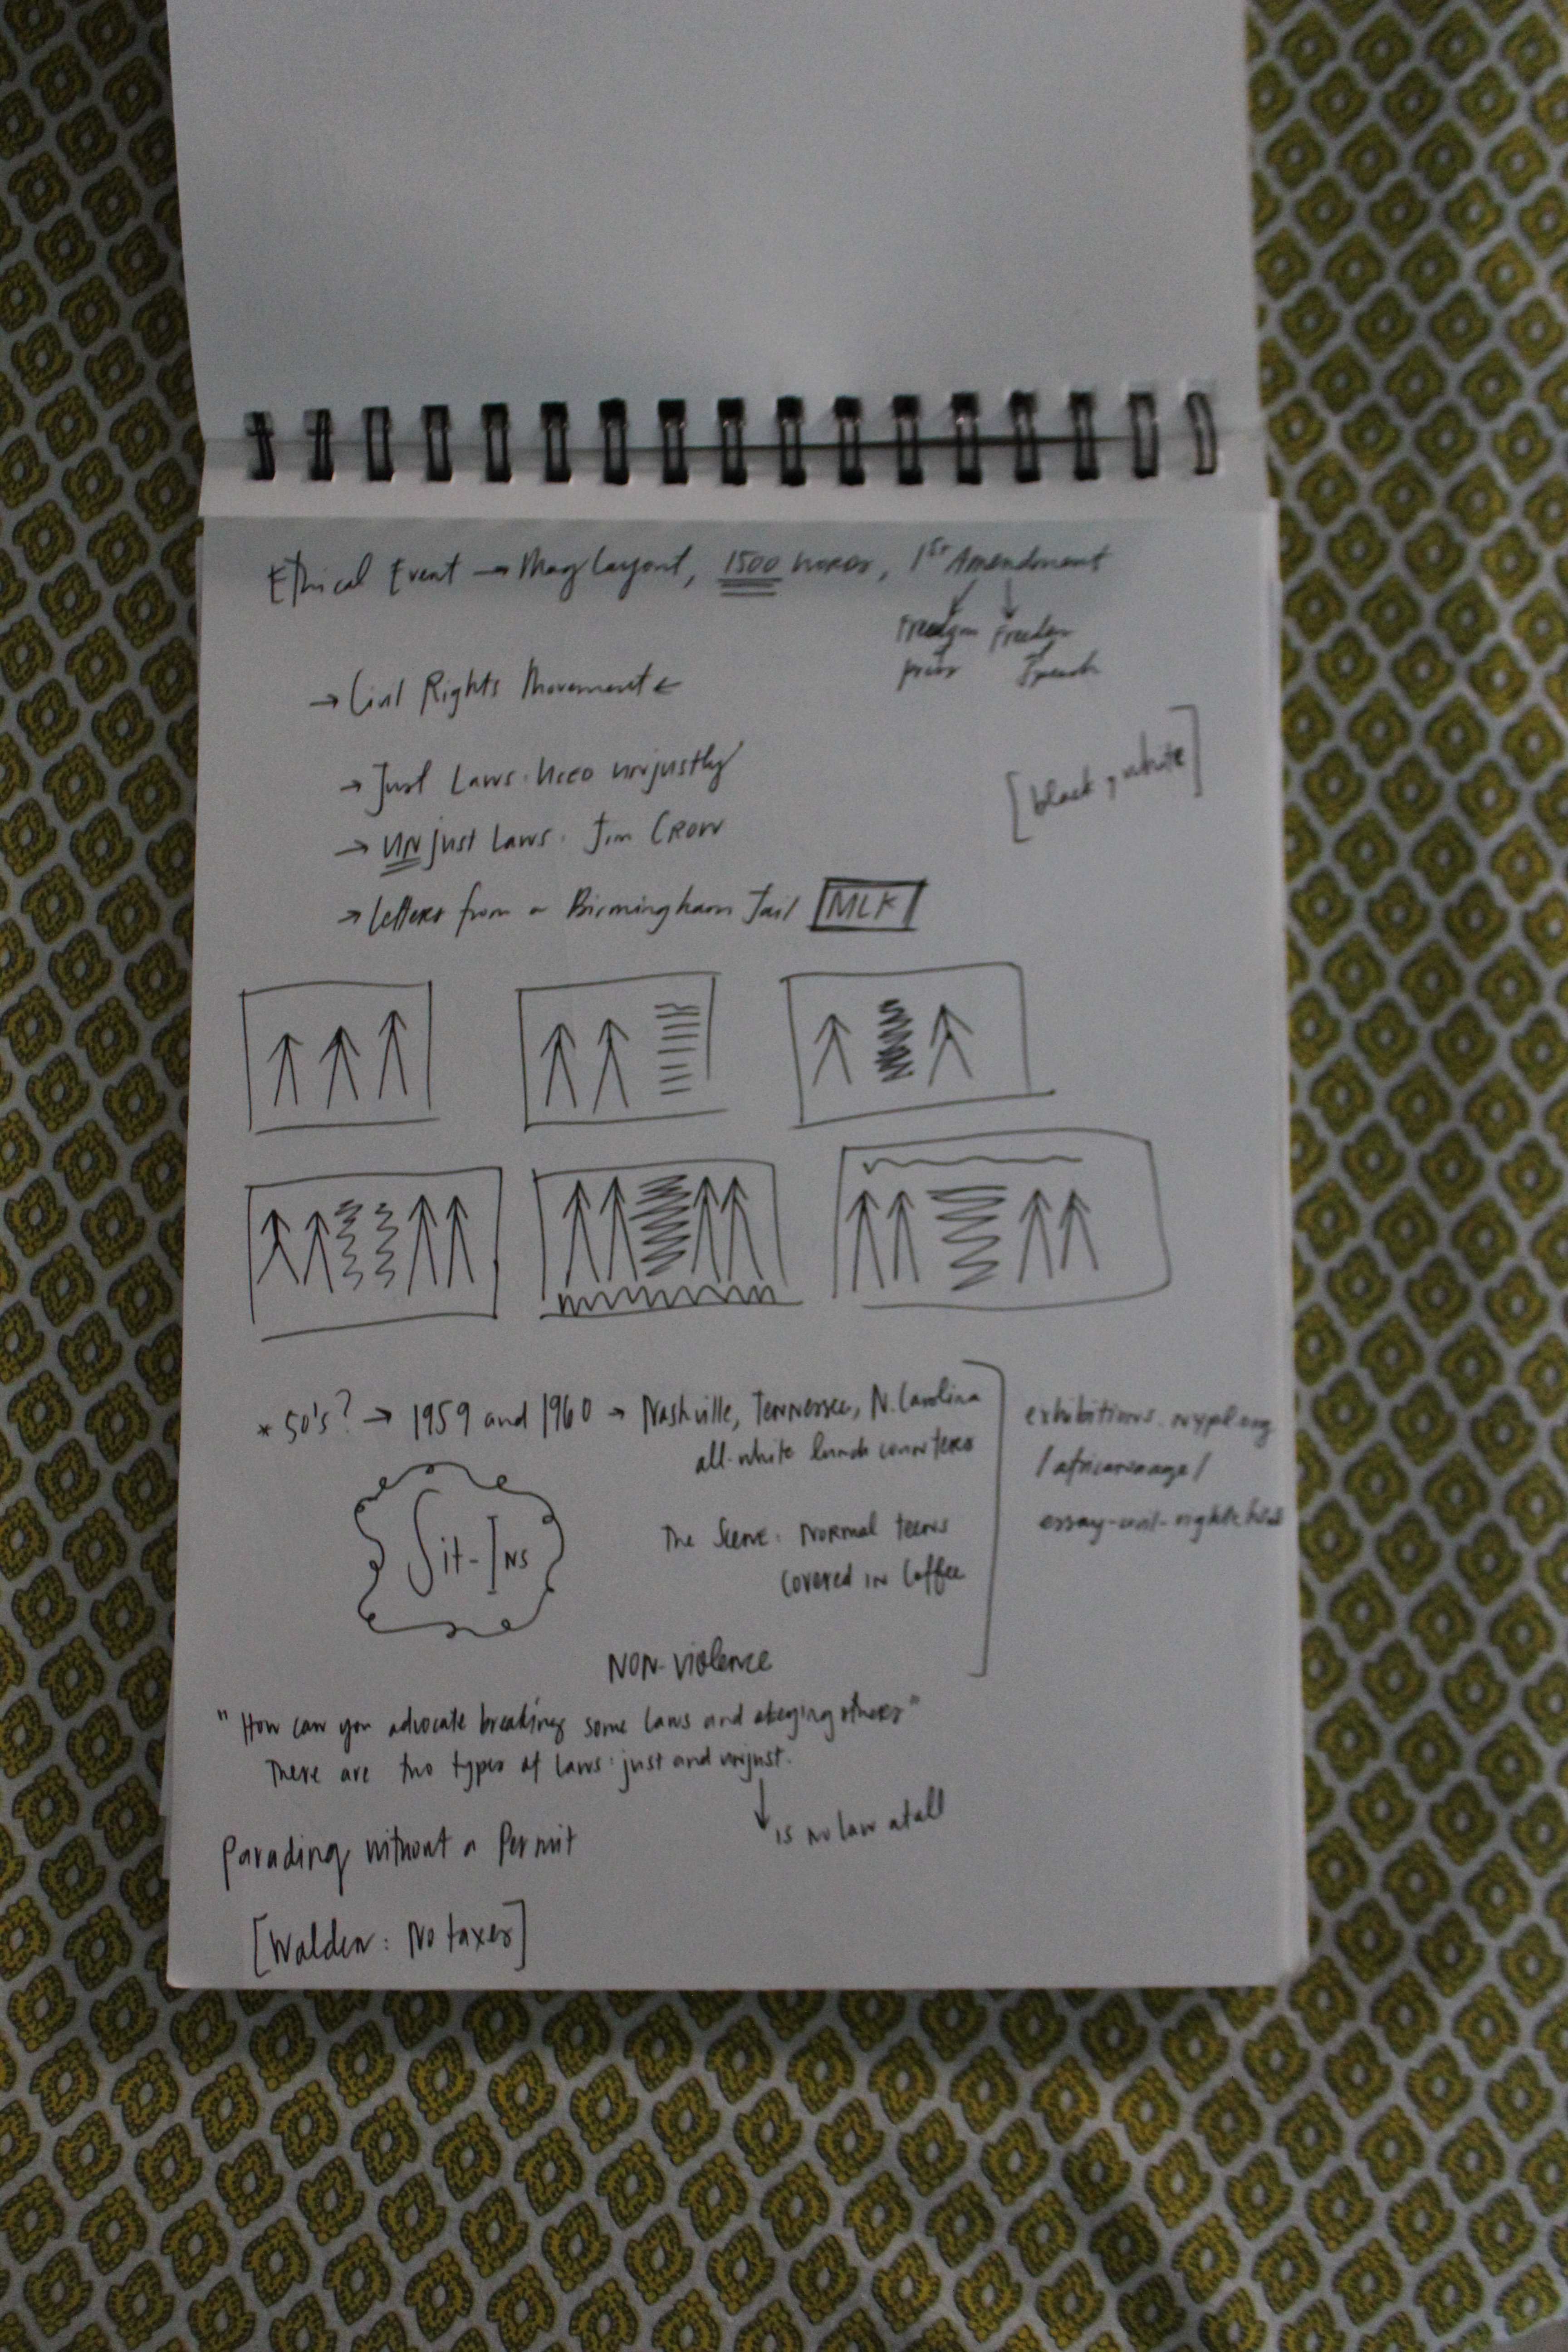 Ethical Event → Mag Layout, 1500 words, 1st Amendment
Freedom press
Freedom Speech
→ Civil Rights Movement ←
[black, white]
→ Just Laws: Used unjustly
→ UNjust Laws: Jim Crow
→ Letters from a Birmingham Jail MLK
* 50's? → 1959 and 1960 → Nashville, Tennessee, N. Carolina
all-white lunch counters
Sit-Ins
The Scene: Normal teens
covered in Coffee
exhibitions.nypl.org
/africanaage/
NON-violence
"How can you advocate breaking some laws and obeying others"
There are two types of laws: just and unjust.
↓ is no law at all
Parading without a Permit
[Walden: No taxes]